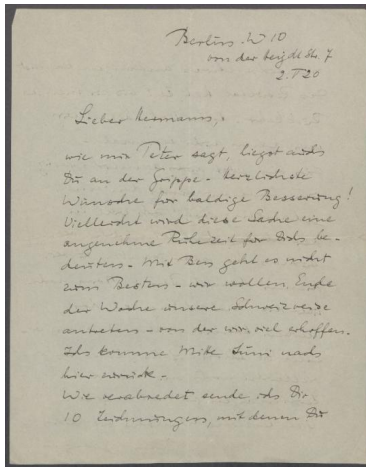 Berlin W 10
von der Heydt Str. 7
2. V 20
Lieber Hermann,
wie mir Peter sagt, liegst auch
Du an der Grippe - herzlichste
Wünsche für baldige Besserung!
Vielleicht wird diese Sache eine
angenehme Ruhezeit für Dich be-
deuten - Mit geht es nicht
zum Besten - wir wollen Ende
der Woche unsere Schweizreise
antreten - von der wir viel erhoffen.
Ich komme Mitte Juni nach
hier zurück -
Wie verabredet sende ich Dir
10 Zeichnungen, mit denen Du